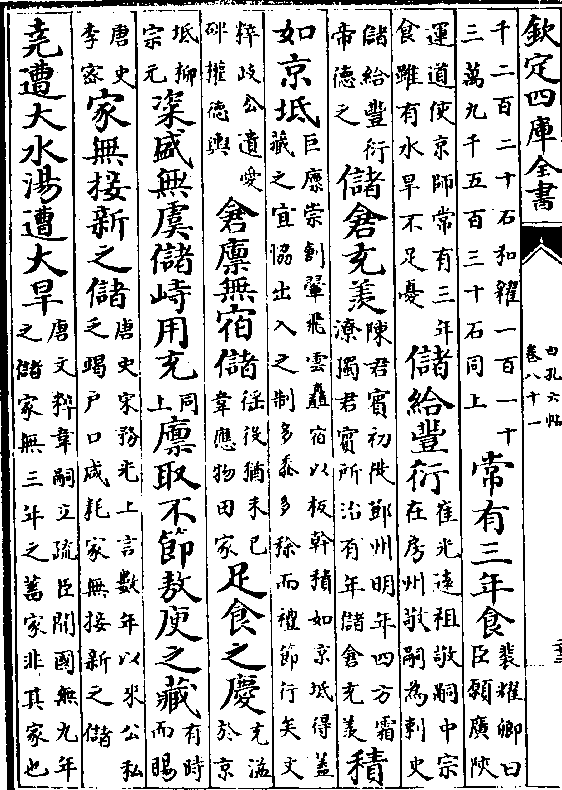 欽定四庫全書 白孔六帖 卷八十一
千二百二十石和糴一百一十三萬九千五百三十石同上常有三年食裴耀卿曰臣願廣陜
運道使京師常有三年食雖有水旱不足憂儲給豐衍崔光遠祖敬嗣中宗在房州敬嗣為刺史
儲給豐衍帝德之儲倉充羨陳君賓初陟鄧州明年四方霜潦獨君賓所治有年儲倉充羨積
如京坻巨廩崇創翬飛雲矗宿以板幹積如京坻得蓋藏之宜協出入之制多黍多稌而禮節行矣文
粹歧公遺愛碑權德輿倉廪無宿儲徭役猶未已韋應物田家足食之慶充溢於京
坻柳宗元粢盛無虞儲峙用充同上廪取不節敖庾之藏有時而賜
唐史李密家無接新之儲唐史宋務光上言數年以來公私乏竭戶口咸耗家無接新之儲
堯遭大水湯遭大旱唐文粹韋嗣立疏臣聞國無九年之儲家無三年之蓄家非其家也